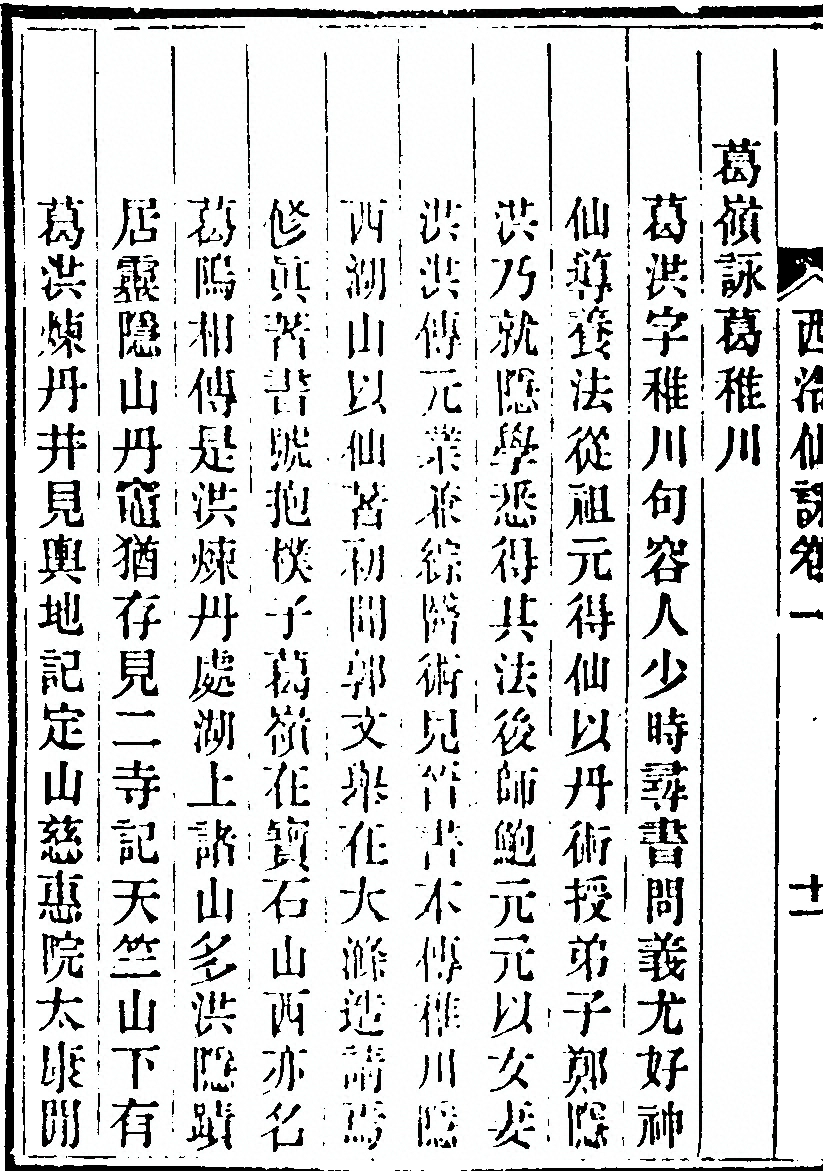 西泠仙詠卷一
十一
葛嶺詠葛稚川
葛洪字稚川句容人少時尋書問義尤好神
仙導養法從祖元得仙以丹術授弟子鄭隱
洪乃就隱學悉得其法後師鮑元元以女妻
洪洪傳元業兼綜醫術見晉書本傳稚川隱
西湖山以仙著初聞郭文舉在大滌造請焉
修真著書號抱樸子葛嶺在寶石山西亦名
葛隖相傳是洪煉丹處湖上諸山多洪隱蹟
居靈隱山丹竈猶存見二寺記天竺山下有
葛洪煉丹井見輿地記定山慈惠院太康間